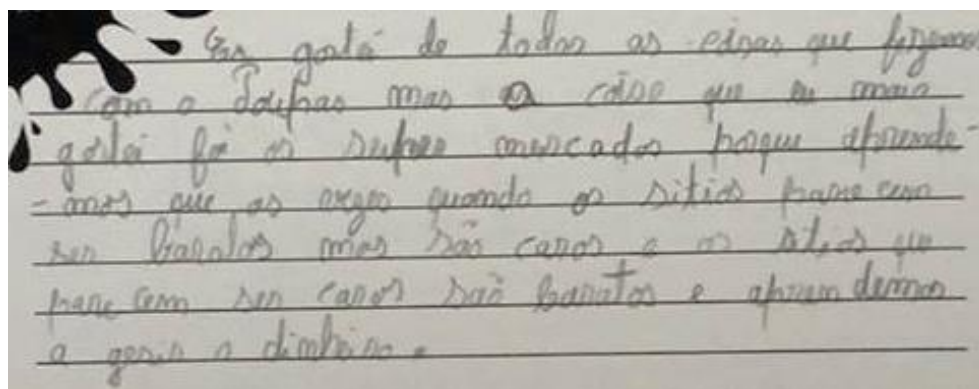 Eu gostei de todas as coisas que fizemos
com o mas a coisa que eu mais
gostei foi os super mercados porque aprende-
-mos que as vezes quando os sitios parecem
ser baratos mas são caros e os sitios que
parecem ser caros são baratos e apremdemos
a gerir o dinheiro.